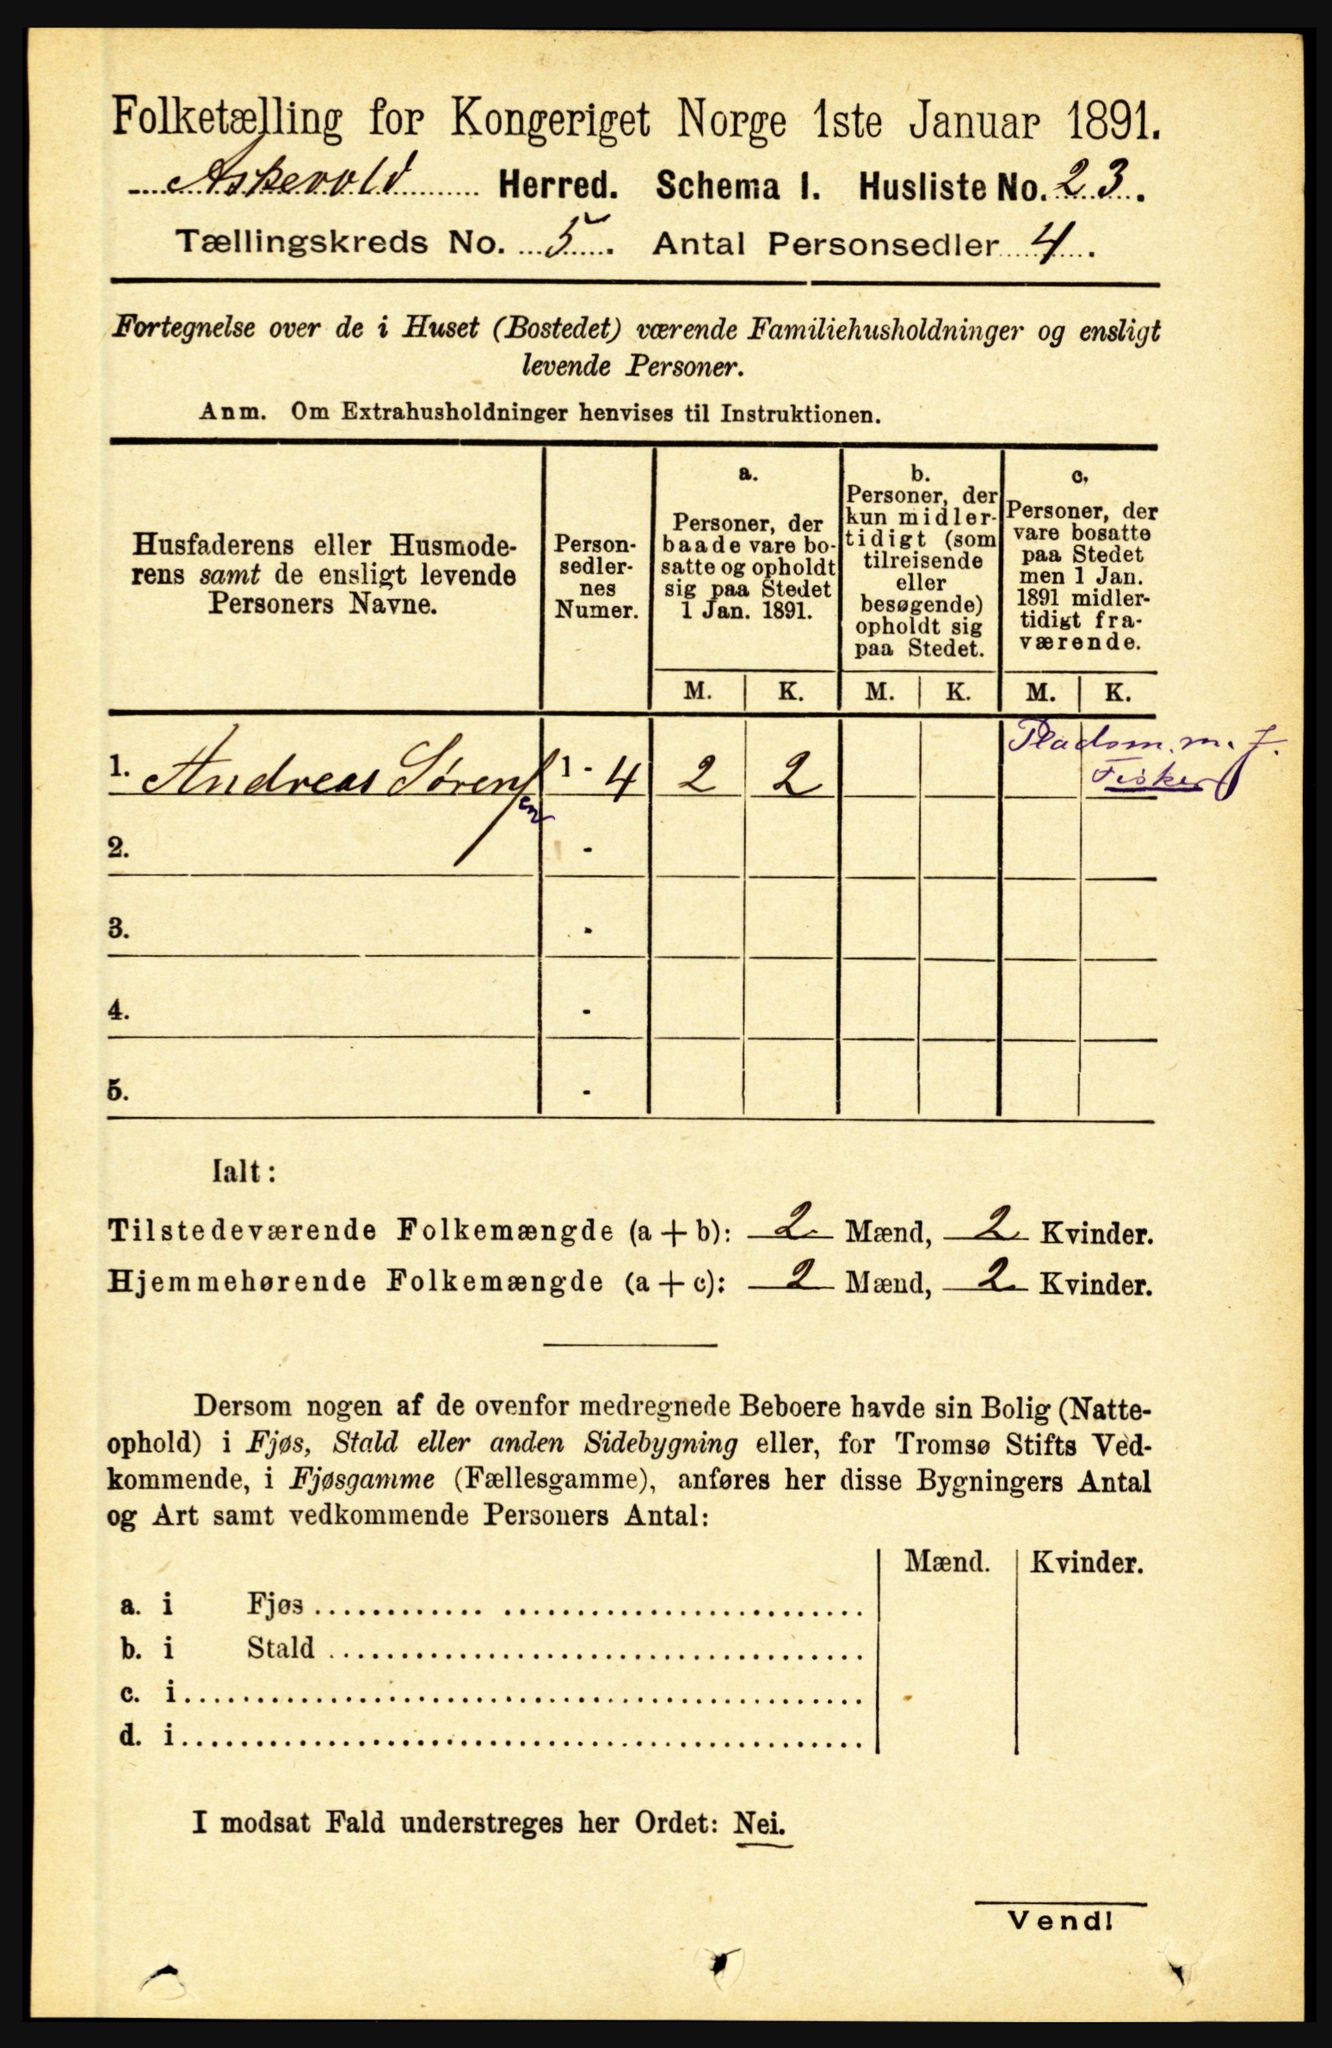 Folketælling for Kongeriget Norge 1ste Januar 1891.
Askevold Herred. Schema I. Husliste No. 23.
Tællingskreds No. 5. Antal Personsedler 4.
Fortegnelse over de i Huset (Bostedet) værende Familiehusholdninger og ensligt
levende Personer.
Anm. Om Extrahusholdninger henvises til Instruktionen.
Husfaderens eller Husmode-
rens samt de ensligt levende
Personers Navne.
Person-
sedler-
nes
Numer.
a.
Personer, der
baade vare bo-
satte og opholdt
sig paa Stedet
1 Jan. 1891.
b.
Personer, der
kun midler-
tidigt (som
tilreisende
eller
besøgende)
opholdt sig
paa Stedet.
c.
Personer, der
vare bosatte
paa Stedet
men 1 Jan.
1891 midler-
tidigt fra-
værende.
M. K. M. K. M. K.
Pladsm. m. J.
Fisker
1. Andreas Sørensen 1 - 4 2 2
2. -
3. -
4. -
5. -
Ialt:
Tilstedeværende Folkemængde (a + b): 2 Mænd, 2 Kvinder.
Hjemmehørende Folkemængde (a + c): 2 Mænd, 2 Kvinder.
Dersom nogen af de ovenfor medregnede Beboere havde sin Bolig (Natte-
ophold) i Fjøs, Stald eller anden Sidebygning eller, for Tromsø Stifts Ved-
kommende, i Fjøsgamme (Fællesgamme), anføres her disse Bygningers Antal
og Art samt vedkommende Personers Antal:
Mænd. Kvinder.
a. i Fjøs
b. i Stald
c. i
d. i
I modsat Fald understreges her Ordet: Nei.
Vend!